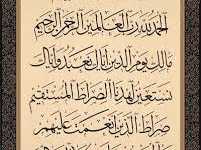 الحمد لله رب العالمين الرحمن الرحيم
مالك يوم الدين إياك نعبد وإياك
نستعين اهدنا الصراط المستقيم
صراط الذين أنعمت عليهم